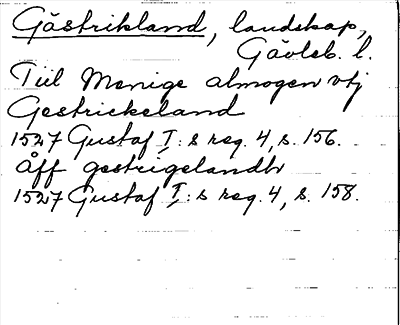 Gästrikland, landskap,
Gävleb. l.
Till Menige almogen vtj
Gestrickeland
1527 Gustaf I:s reg. 4, s. 156.
Åff gestrigelandh
1527 Gustaf I:s reg. 4, s. 158.